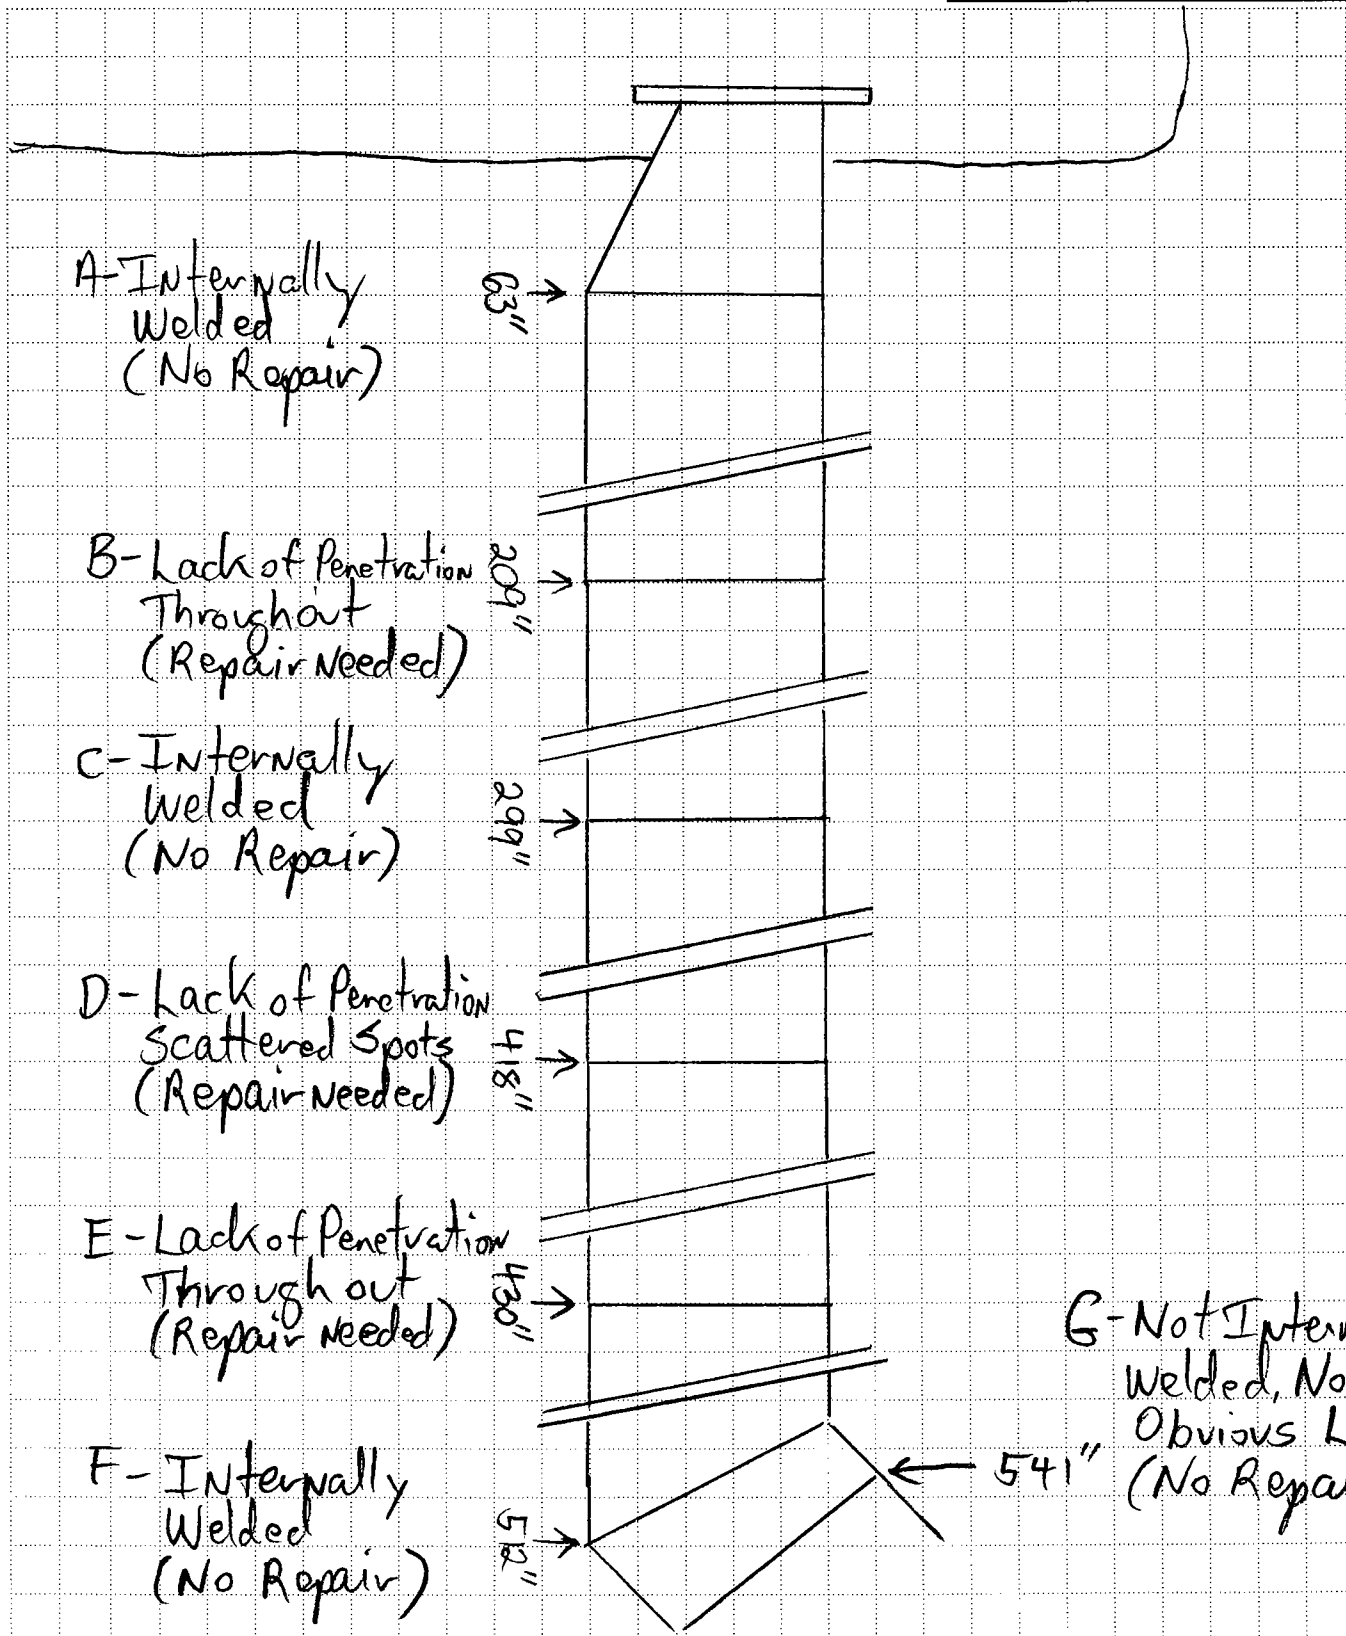 A-Internally
Welded
(No Repair)
63"
B-Lack of Penetration
Throughout
(Repair Needed)
209"
C-Internally
Welded
(No Repair)
299"
D-Lack of Penetration
Scattered Spots
(Repair Needed)
418"
E-Lack of Penetration
Through out
(Repair Needed)
430"
F-Internally
Welded
(No Repair)
512"
541"
G-Not Inter
Welded, No
Obvious L
(No Repa